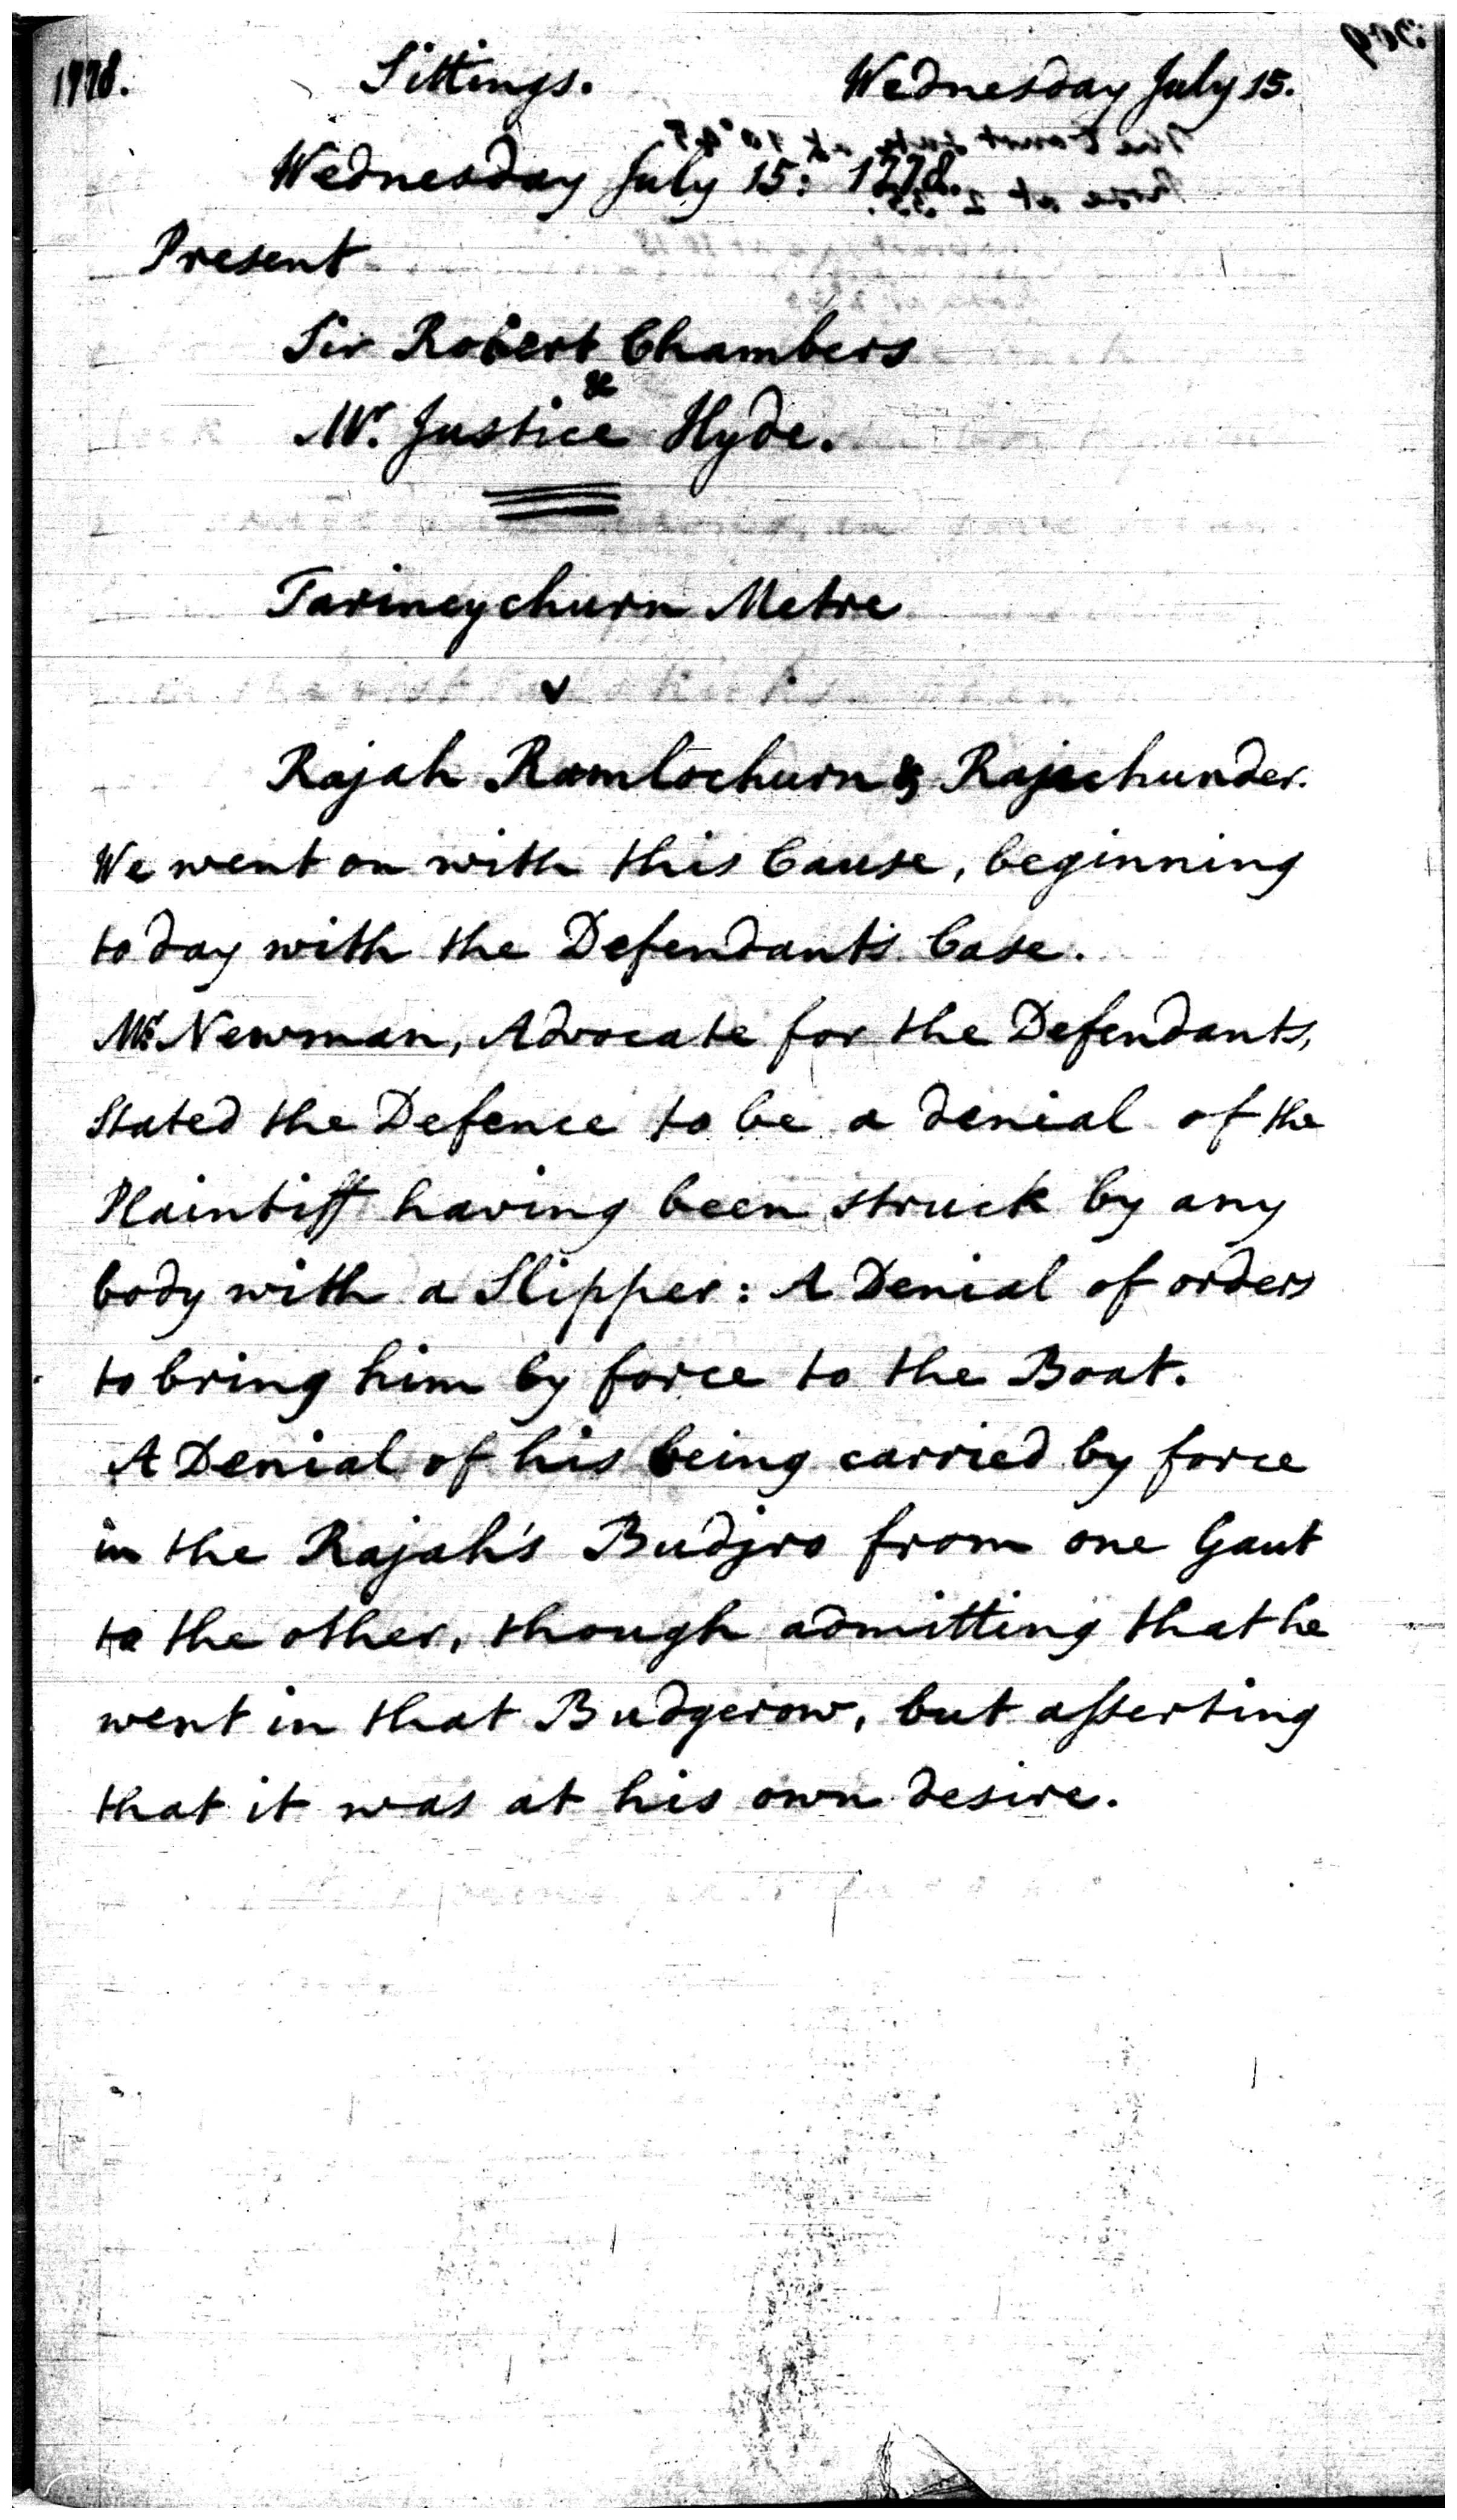 1778. Sittings. Wednesday July 15.
Wednesday July 15: 1778.
Present
Sir Robert Chambers
&
Mr. Justice Hyde.
Tarineychurn Metre
v
Rajah Ramlochurn & Rajechunder.
We went on with this Cause, beginning
to day with the Defendants Case.
Mr. Newman, Advocate for the Defendants,
Stated the Defence to be a denial of the
Plaintiff having been struck by any
body with a Slipper: A Denial of orders
to bring him by force to the Boat.
A Denial of his being carried by force
in the Rajah's Budjro from one Gaut
to the other, though admitting that he
went in that Budgerow, but asserting
that it was at his own desire.